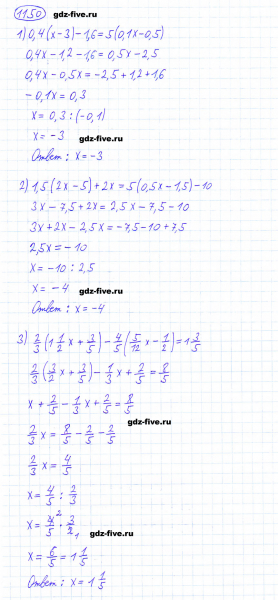 1150 gdz-five.ru
1) 0,4(x-3)-1,6=5(0,1x-0,5)
0,4x-1,2-1,6=0,5x-2,5
0,4x-0,5x=-2,5+1,2+1,6
-0,1x=0,3
x=0,3:(-0,1)
x=-3
gdz-five.ru
Ответ: x=-3
2) 1,5(2x-5)+2x=5(0,5x-1,5)-10
3x-7,5+2x=2,5x-7,5-10
3x+2x-2,5x=-7,5-10+7,5
2,5x=-10
x=-10:2,5
x=-4
gdz-five.ru
Ответ: x=-4
3) 2/3(1 1/2 x+3/5)-4/5(5/12 x-1/2)=1 3/5
2/3(3/2 x+3/5)-1/3 x+2/5=8/5
x+2/5-1/3 x+2/5=8/5
gdz-five.ru
2/3 x=8/5-2/5-2/5
2/3 x=4/5
x=4/5:2/3
x=4/5 2·3/2 1
gdz-five.ru
x=6/5=1 1/5
Ответ: x=1 1/5